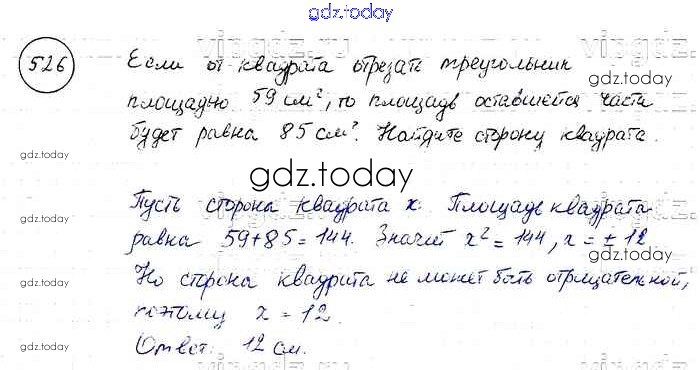 gdz.today
526 Если от квадрата отрезать треугольник
gdz.today
площадью 59 см², то площадь оставшейся части
будет равна 85 см². Найдите сторону квадрата.
gdz.today
gdz.today
gdz.today
Пусть сторона квадрата x. Площадь квадрата
равна 59+85=144. Значит x² = 144, x = ± 12
gdz.today
Но сторона квадрата не может быть отрицательной,
поэтому x = 12.
gdz.today
Ответ: 12 см.
gdz.today